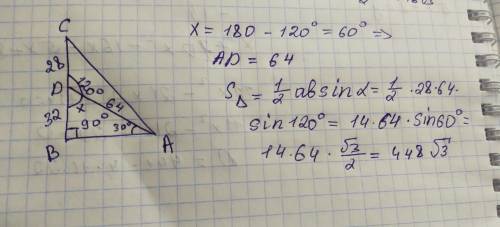 C
28
D
120°
64
32
x
90°
30°
B
A
x = 180 - 120° = 60° =>
AD = 64
S△ = 1/2 ab sin α = 1/2 · 28 · 64 ·
sin 120° = 14 · 64 · sin 60° =
14 · 64 · √3/2 = 448 √3